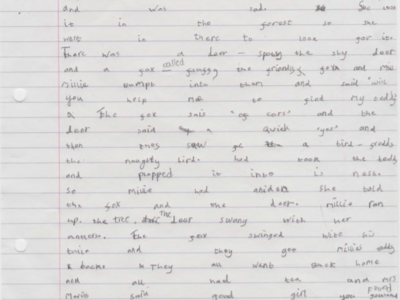 and was sad. See
it in the forrest so she
went in there to look for it.
There was a deer – the shy deer
and a fox called the friendly fox and
millie bumpt into them and said "will
you help me to find my teddy
& The fox said "of cors" and the
deer said a quiet "yes" and
then they saw a bird –
the naughty bird. had took the teddy
and propped it into is nest.
so millie had an idea she told
the fox and the deer. millie ran
up. the tree. The deer swang with her
antlers. The fox swinged with his
twice and they got millies teddy
& back & They all went back home
and all had tea and mrs
said good girl you